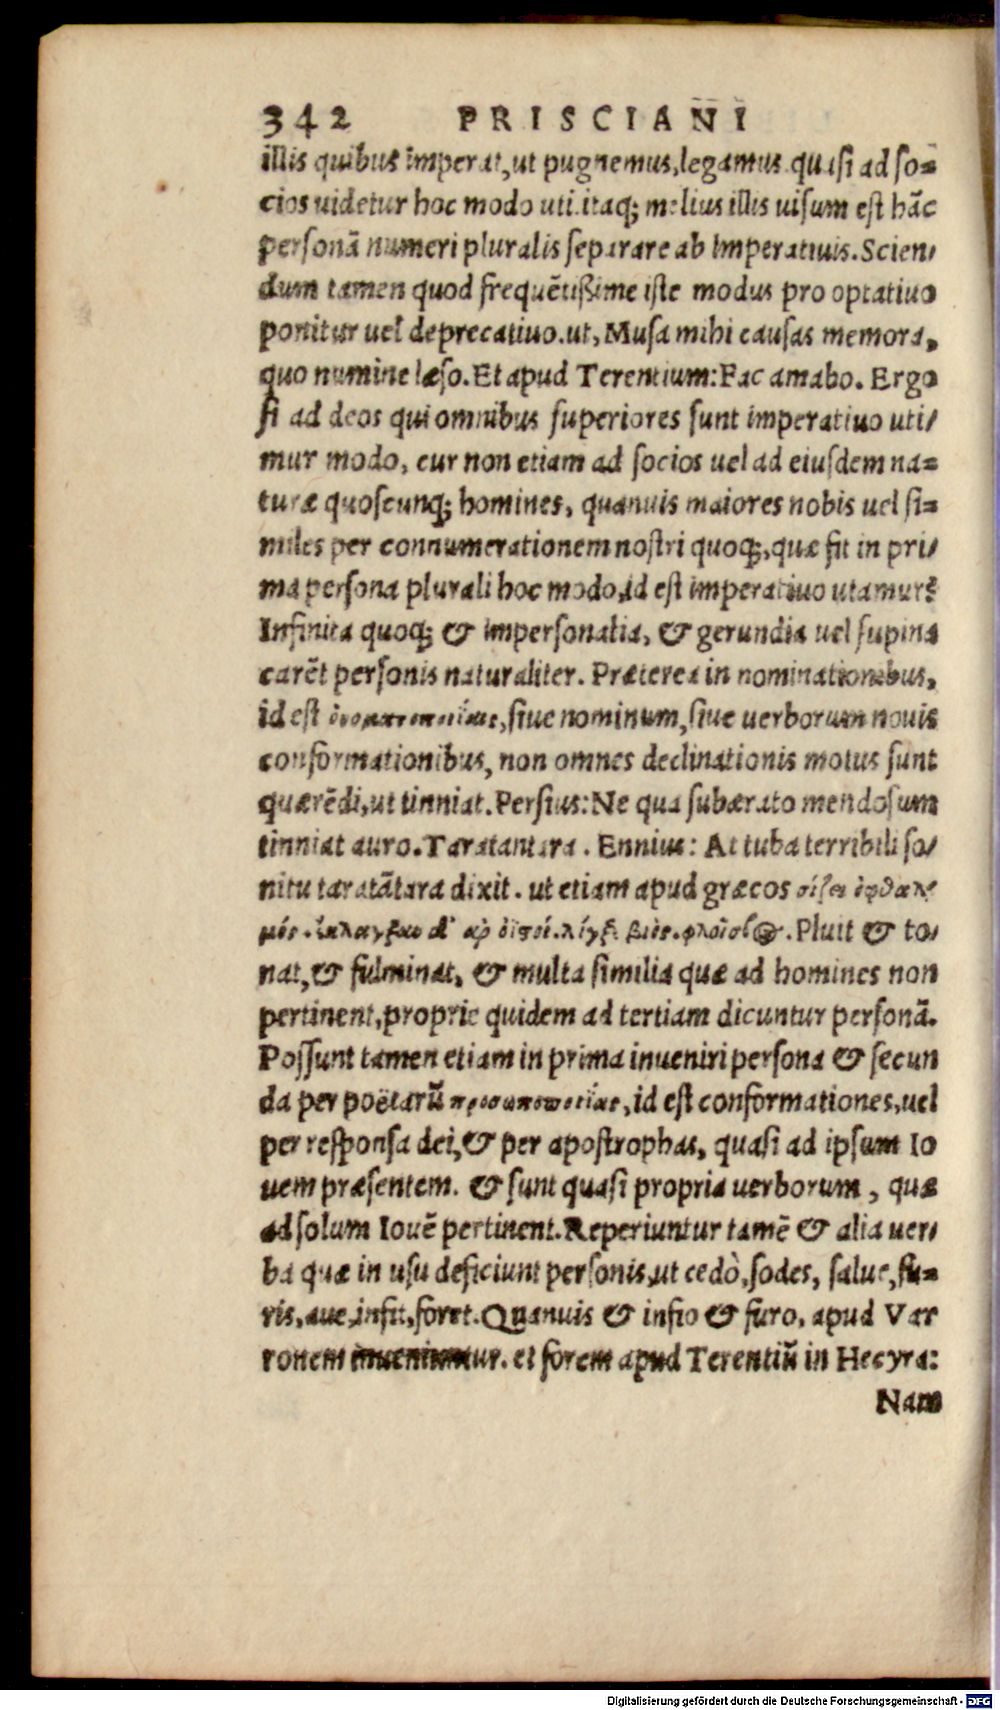 342 PRISCIANI
illis quibus imperat, ut pugnemus, legamus quasi ad so=
cios uidetur hoc modo uti. itaq; melius illis uisum est hãc
personã numeri pluralis separare ab imperatiuis. Scien/
dum tamen quod frequẽtißime iste modus pro optatiuo
ponitur uel deprecatiuo. ut, Musa mihi causas memora,
quo numine læso. Et apud Terentium: Fac amabo. Ergo
si ad deos qui omnibus superiores sunt imperatiuo uti/
mur modo, cur non etiam ad socios uel ad eiusdem na=
turæ quoscunq; homines, quanuis maiores nobis uel si=
miles per connumerationem nostri quoq;, quæ fit in pri/
ma persona plurali hoc modo, id est imperatiuo utamur?
Infinita quoq; & impersonalia, & gerundia uel supina
carẽt personis naturaliter. Præterea in nominationibus,
id est ὀνοματοποιΐαις, siue nominum, siue uerborum nouis
conformationibus, non omnes declinationis motus sunt
quærẽdi, ut tinniat. Persius: Ne qua subærato mendosum
tinniat auro. Taratantara. Ennius: At tuba terribili so/
nitu taratãtara dixit. ut etiam apud græcos σίζει ὀφθαλ
μός. ἔκλαγξαν δ' ἄρ ὀϊστοί. λίγξε βιός. φλοῖσβ. Pluit & to/
nat, & fulminat, & multa similia quæ ad homines non
pertinent, proprie quidem ad tertiam dicuntur personã.
Possunt tamen etiam in prima inueniri persona & secun
da per poëtarũ προσωποποιΐας, id est conformationes, uel
per responsa dei, & per apostrophas, quasi ad ipsum Io
uem præsentem. & sunt quasi propria uerborum, quæ
ad solum Iouẽ pertinent. Reperiuntur tamẽ & alia uer/
ba quæ in usu deficiunt personis, ut cedò, sodes, salue, fu=
ris, aue, infit, foret. Quanuis & infio & furo, apud Var
ronem inueniuntur. et forem apud Terentiũ in Hecyra:
Nam
Digitalisierung gefördert durch die Deutsche Forschungsgemeinschaft - DFG